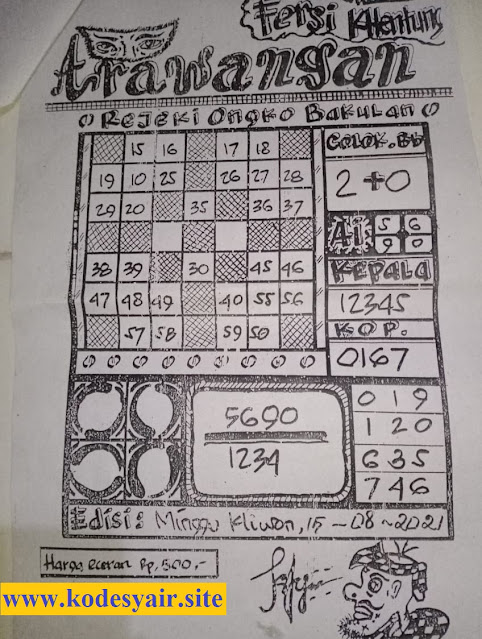 Fersi Ktlentung
trawangan
Rejeki Ongko Bakulan
15 16 17 18
19 10 25 26 27 28
29 20 35 36 37
38 39 30 45 46
47 48 49 40 55 56
57 58 59 50
COLOK.BB
2+0
AI 5 6
9 0
KEPALA
12345
KOP.
0167
5690
1234
0 1 9
1 2 0
6 3 5
7 4 6
Edisi: Minggu Kliwon, 15 - 08 - 2021
Harga eceran Rp, 500,-
www.kodesyair.site